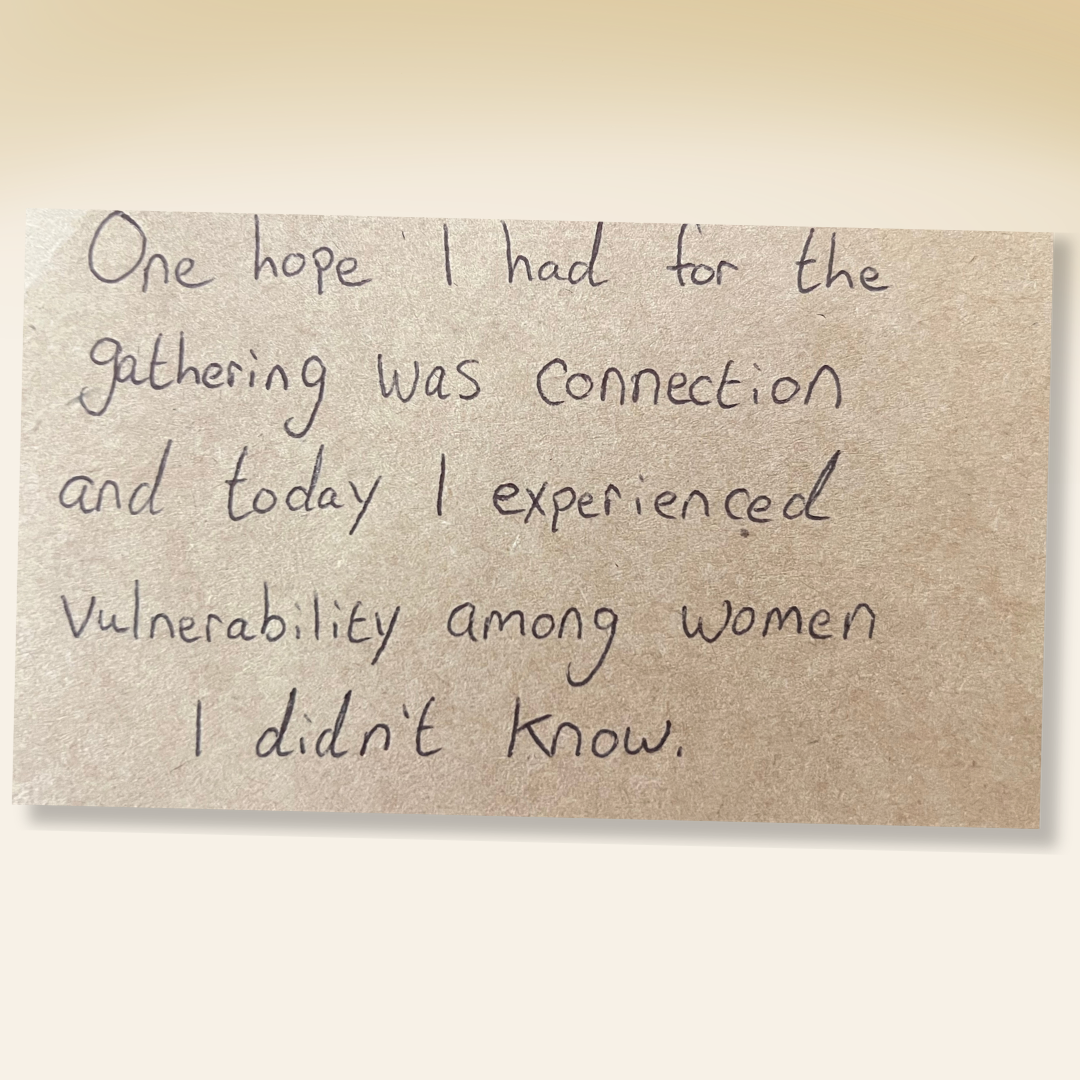 One hope I had for the
gathering was connection
and today I experienced
vulnerability among women
I didn't know.